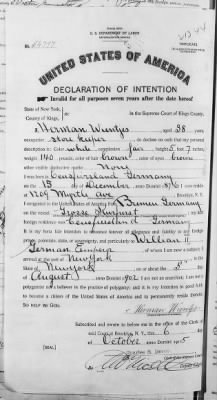 U. S. DEPARTMENT OF LABOR
UNITED STATES OF AMERICA
DECLARATION OF INTENTION
Invalid for all purposes seven years after the date hereof
State of New York,
County of Kings,
In the Supreme Court of Kings County.
I, Herman Wientjes, aged 38 years,
occupation Store keeper, do declare on oath that my personal
description is: Color white, complexion fair, height 5 feet 7 inches,
weight 140 pounds, color of hair brown, color of eyes brown
other visible distinctive marks None
Germany
on the 15 day of December
I now reside at 1209 Myrtle ave
I emigrated to the United States of America from Bremen Germany
on the vessel Grosse Kurfurst
foreign residence was Germany
It is my bona fide intention to renounce forever all allegiance and fidelity to any foreign
prince, potentate, state, or sovereignty, and particularly to William II
German Emperor, of whom I am now a subject; I
arrived at the port of New York
State of New York, on or about the
day of August
I am not an anarchist; I am not a
polygamist nor a believer in the practice of polygamy; and it is my intention in good faith
to become a citizen of the United States of America and to permanently reside therein:
SO HELP ME GOD.
Herman Wientjes
Subscribed and sworn to before me in the office of the Clerk of
said Court at Brooklyn, N. Y., this 6
day of October
[SEAL]